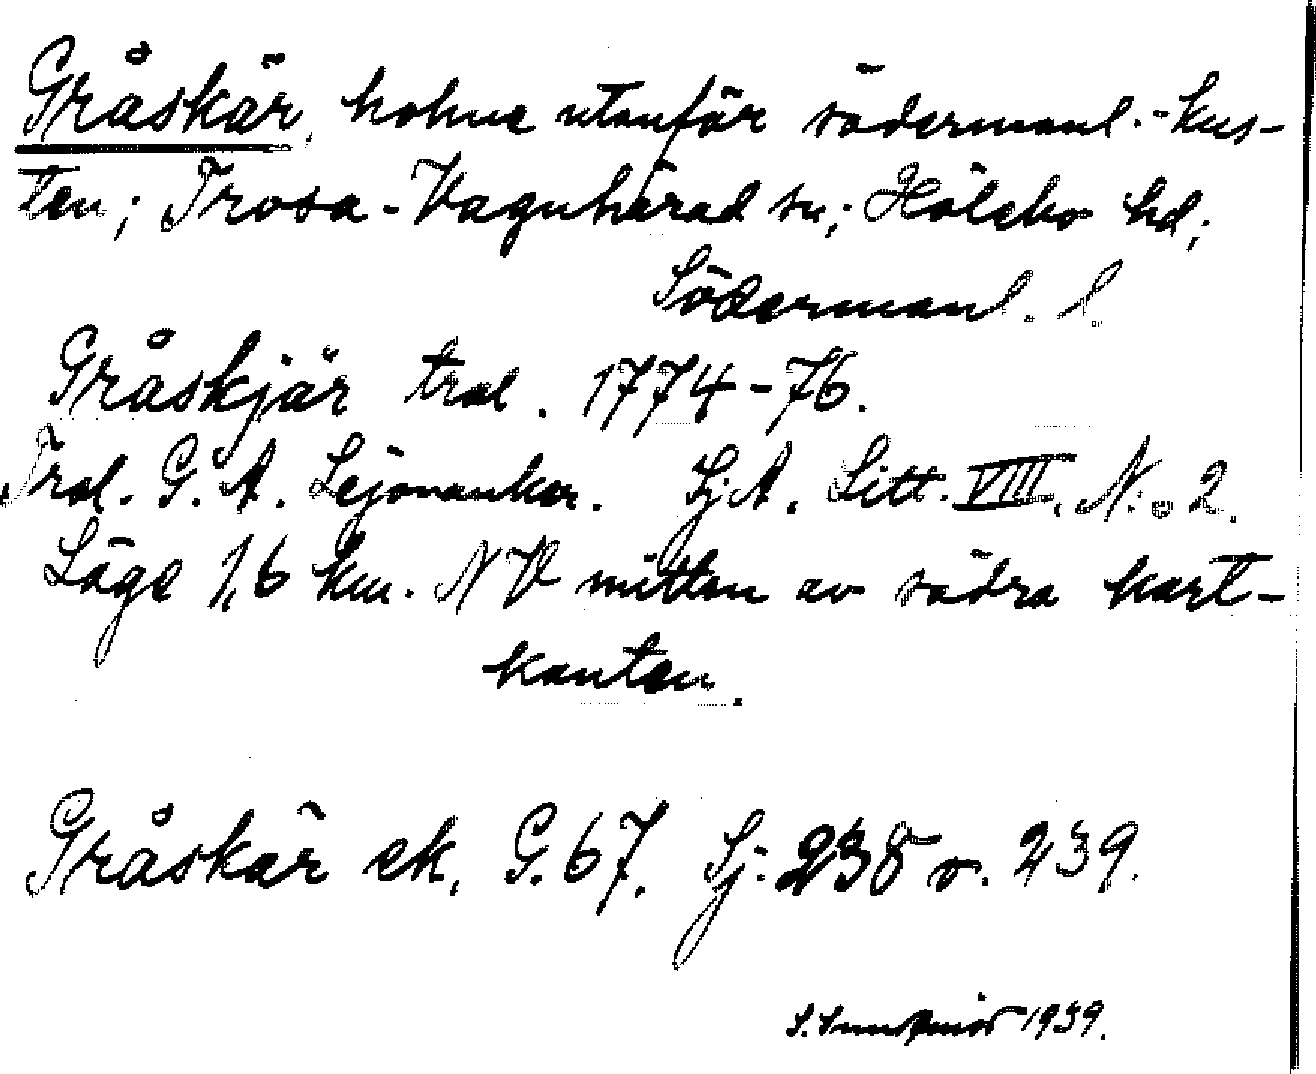 Gråskär, holme utanför södermanl.-kus-
ten; Trosa-Vagnhärad sn; Hölebo hd;
Södermanl. l.
Gråskjär trol. 1774-76.
Trol. G. A. Lejonankar. Sj.A. Litt. VIII, N:o 2.
Läge 1,6 km. NV mitten av södra kart-
kanten.
Gråskär ek. G. 67. Sj: 238 o. 239.
S. 1939.